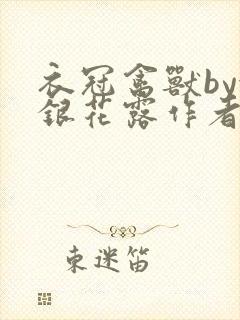 衣冠禽獸by
銀花露作者
束迷笛